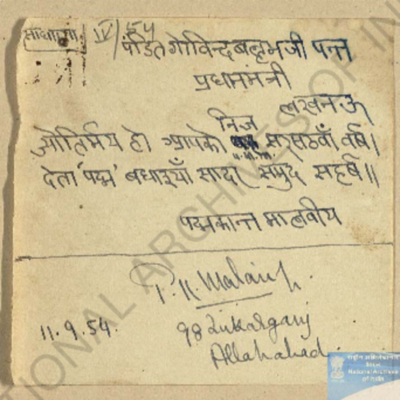 साधारण IV/54
पंडित गोविन्द बल्लभ जी पन्त
प्रधानमंत्री
लखनऊ
ज्योतिर्मय हो आपको निज सरसठवाँ वर्ष।
देता 'पद्म' बधाइयाँ सादर समुद सहर्ष॥
पद्मकान्त मालवीय
P. K. Malaviya
11.9.54.
98 Lukarganj
Allahabad.
NATIONAL ARCHIVES OF IN
राष्ट्रीय अभिलेखागार
National Archives
of India